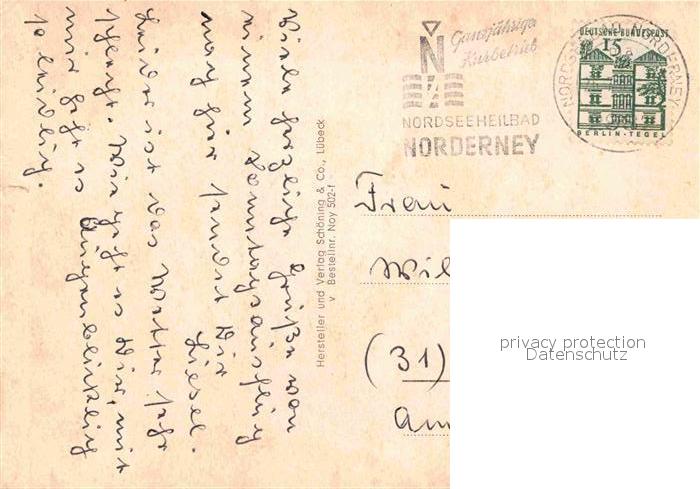 Viele herzliche Grüße von
einem Sonntagsausflug
nach hier sendet Dir
Liesel.
Leider ist das Wetter sehr
schlecht. Wie geht es Dir, mit
mir geht es Augenblicklich
so leidlig.
Hersteller und Verlag Schöning & Co., Lübeck
v Bestellnr. Noy 502-f
Ganzjähriger
Kurbetrieb
N
NORDSEEHEILBAD
NORDERNEY
NORDSEEBAD NORDERNEY
DEUTSCHE BUNDESPOST
15
BERLIN-TEGEL
Frau
Wil
(31)
Am
privacy protection
Datenschutz